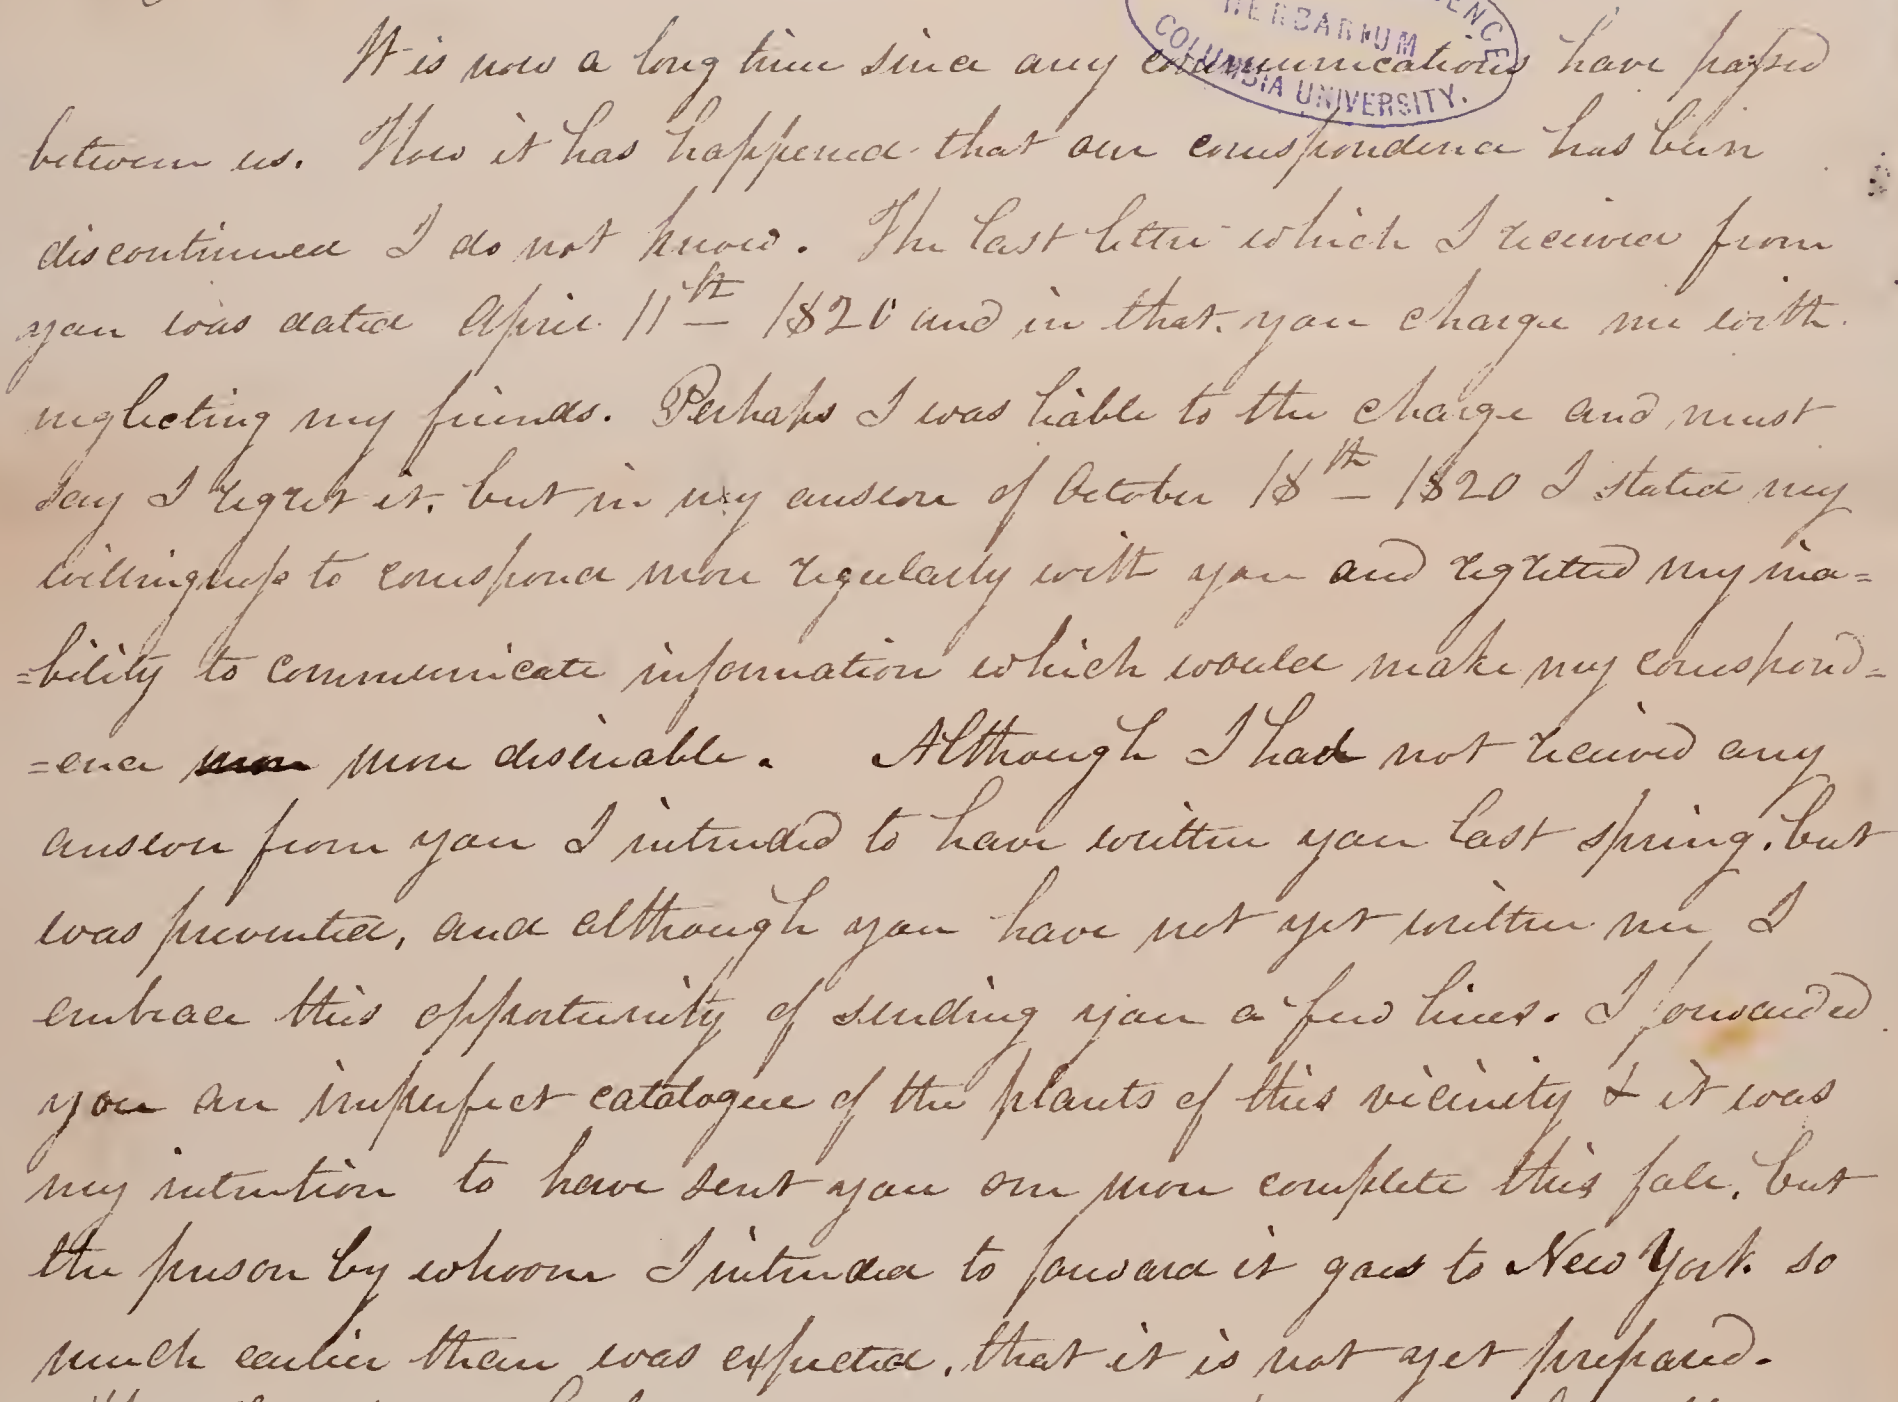 ENCE
HERBARIUM
COLUMBIA UNIVERSITY.
It is now a long time since any communications have passed
between us. How it has happened that our correspondence has been
discontinued I do not know. The last letter which I received from
you was dated April 11th 1820 and in that you charge me with
neglecting my friends. Perhaps I was liable to the charge and must
say I regret it, but in my answer of October 18th 1820 I stated my
willingness to correspond more regularly with you and regretted my ina=
=bility to communicate information which would make my correspond=
=ence more desireable. Although I had not received any
answer from you I intended to have written you last spring, but
was prevented, and although you have not yet written me I
embrace this opportunity of sending you a few lines. I forwarded
you an imperfect catalogue of the plants of this vicinity & it was
my intention to have sent you one more complete this fall, but
the person by whoom I intended to forward it goes to New York so
much earlier than was expected, that it is not yet prepared.